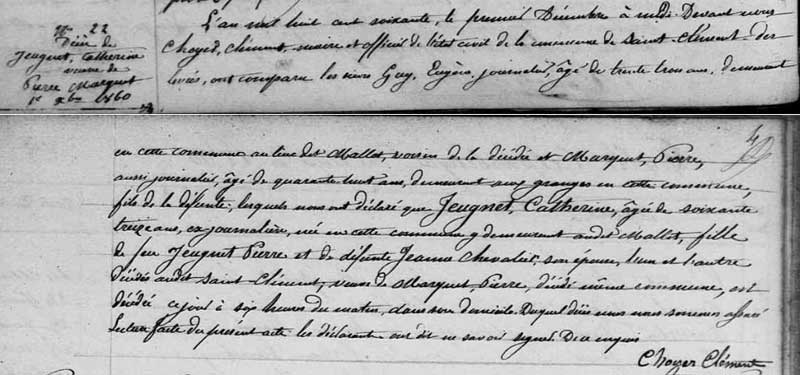 N° 22
Décès de
Jeugnet, Catherine
veuve de
Pierre Marquet
1er Xbre 1860
L'an mil huit cent soixante, le premier Décembre à midi Devant nous
Choyer, Clément, maire et officier de l'état civil de la commune de Saint-Clément-des
ont comparu les sieurs Guy, Eugène, journalier, âgé de trente trois ans, demeurant
4
en cette commune au lieu dit Mallot, voisin de la décédée et Marquet, Pierre,
aussi journalier, âgé de quarante huit ans, demeurant aux granges en cette commune,
fils de la défunte, lesquels nous ont déclaré que Jeugnet, Catherine, âgée de soixante
treize ans, ex journalière, née en cette commune y demeurant audit Mallot, fille
de feu Jeugnet Pierre et de défunte Jeanne Chevalier, son épouse, l'un et l'autre
décédés audit Saint-Clément, veuve de Marquet, Pierre, décédé même commune, est
décédée ce jour à six heures du matin, dans son domicile. Duquel décès nous nous sommes assuré
Lecture faite du présent acte les déclarants ont dit ne savoir signer. De ce enquis
Choyer Clément